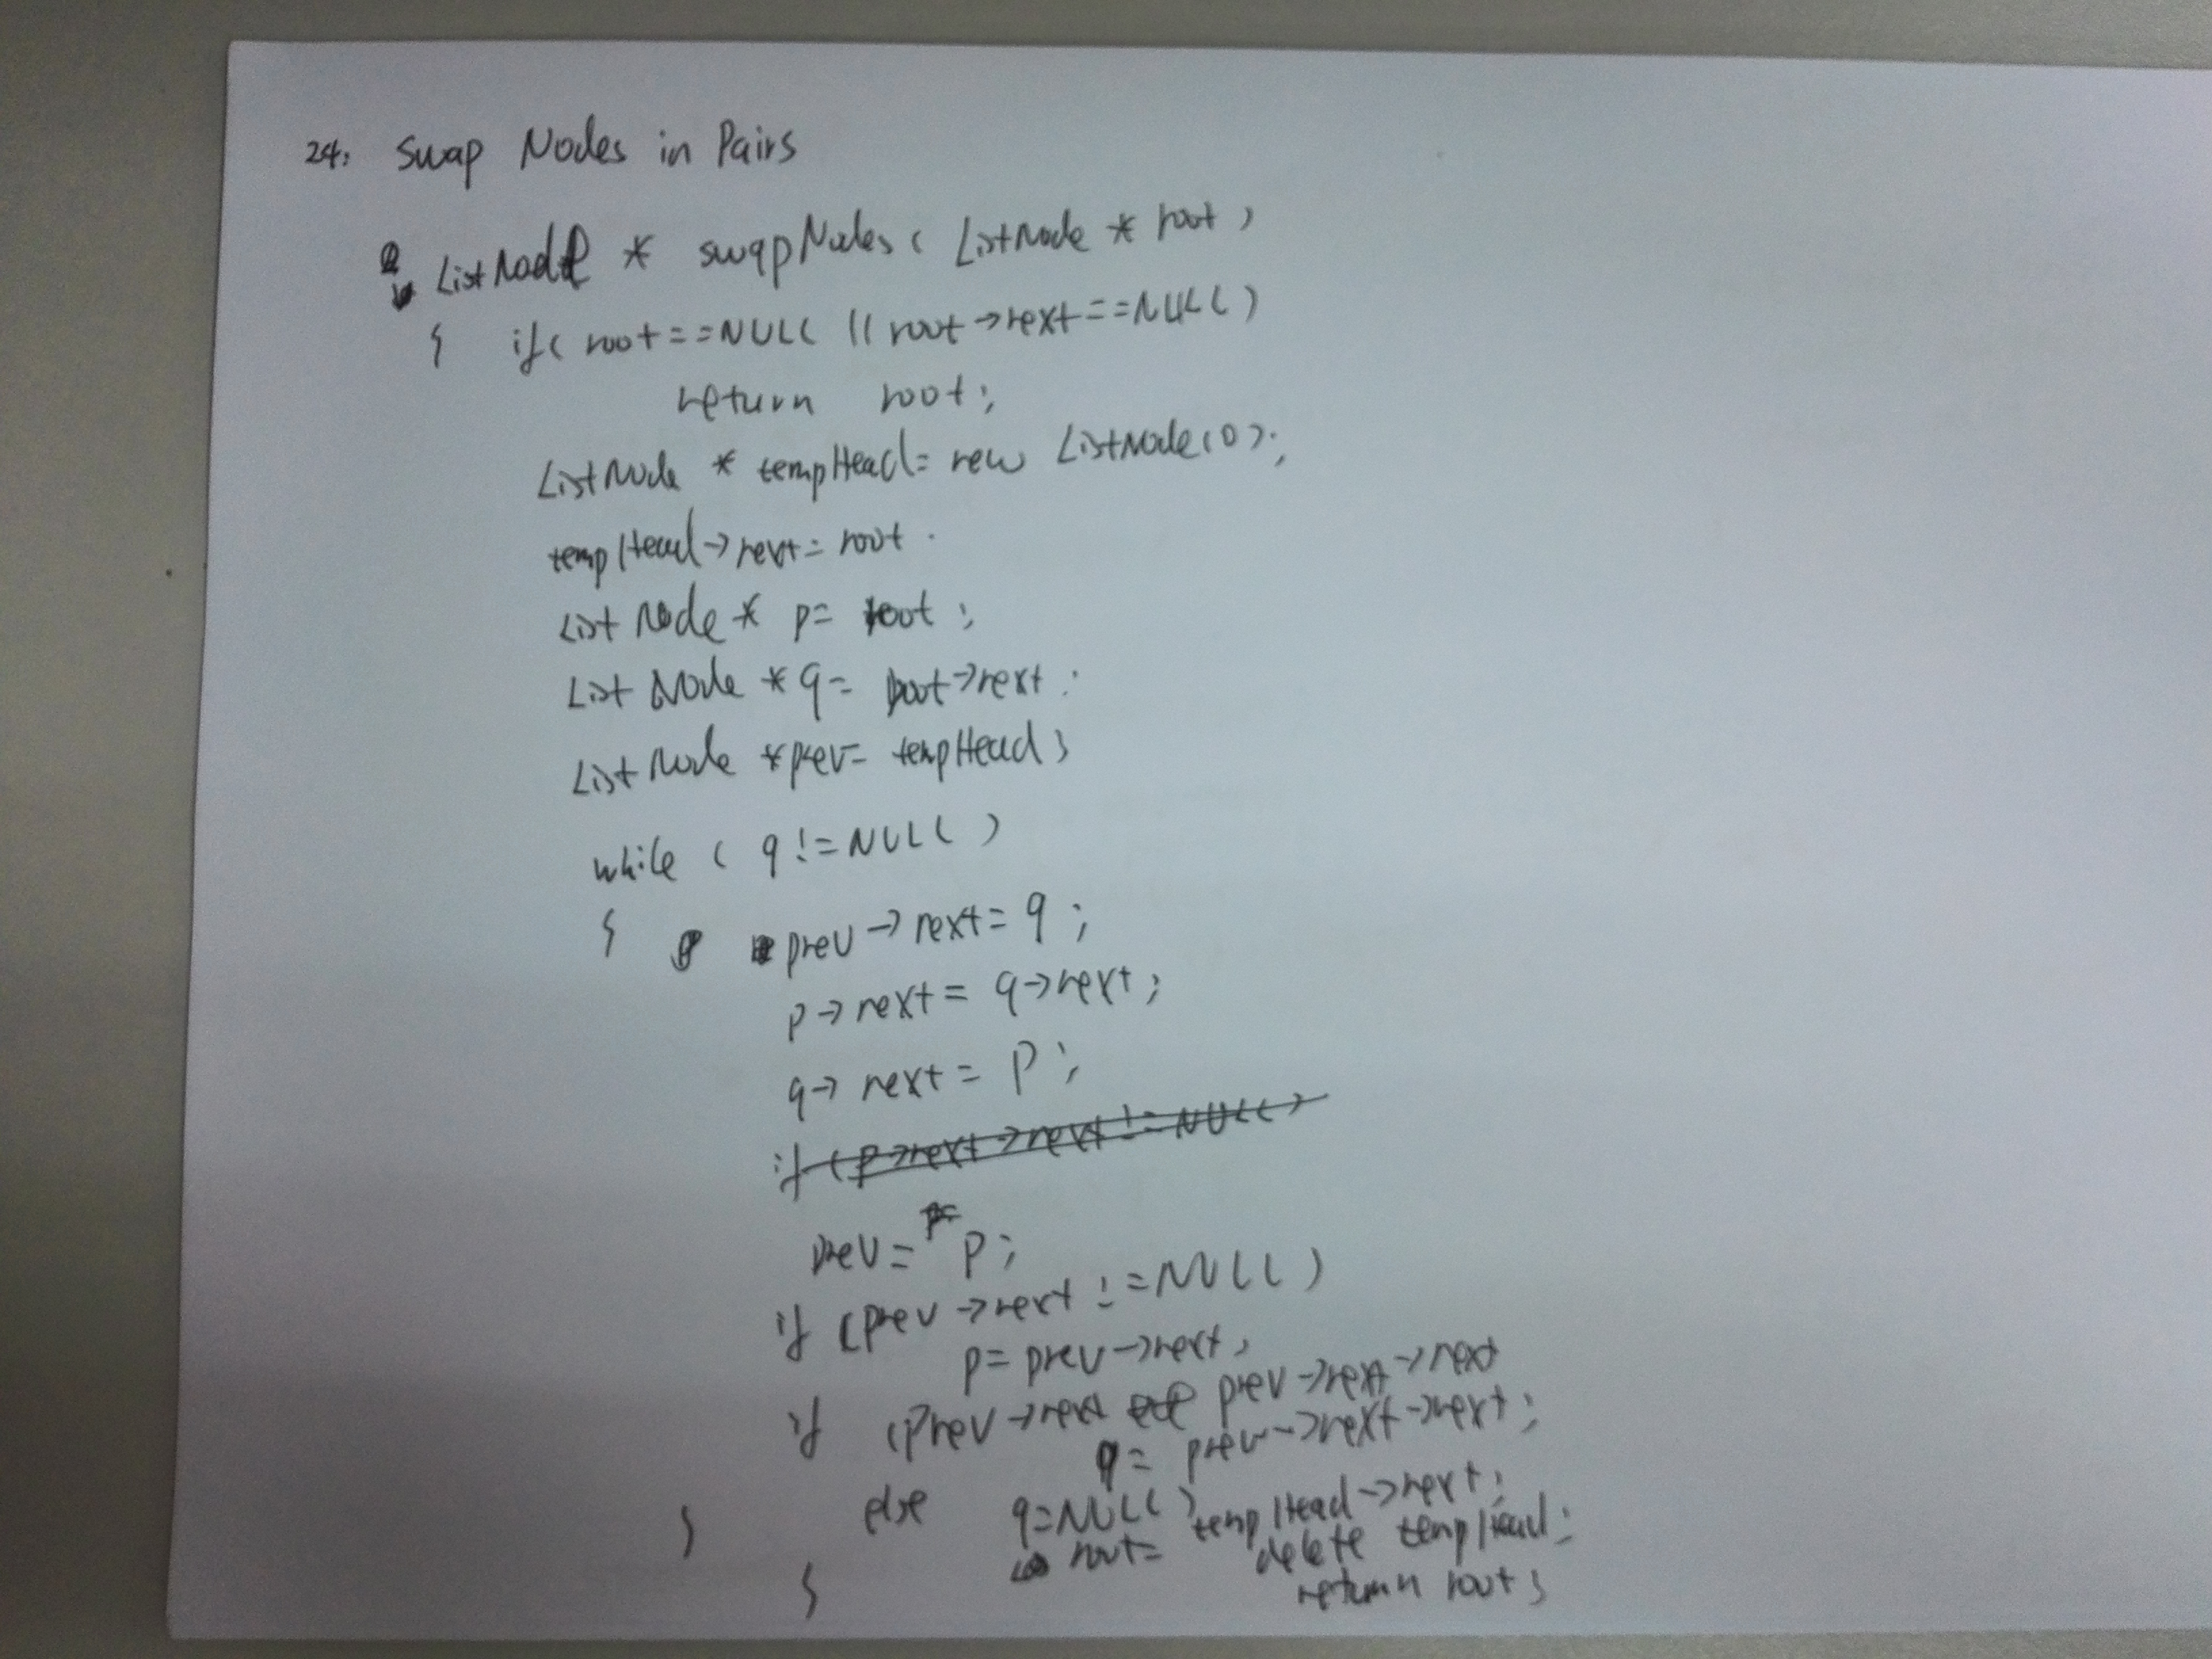 24. Swap Nodes in Pairs
ListNode * swapNodes ( ListNode * root )
{ if( root==NULL || root->next==NULL )
return root;
ListNode * tempHead= new ListNode(0);
tempHead->next= root.
ListNode * p= root ;
ListNode *q= root->next ;
ListNode *prev= tempHead;
while ( q!=NULL )
{ prev->next= q ;
p->next= q->next;
q->next= p;
if (p->next->next!=NULL)
prev= p;
if (prev->next !=NULL )
p= prev->next;
if (prev->next prev->next->next
q= prev->next->next;
else q=NULL;
} root= tempHead->next;
delete tempHead;
return root;
}